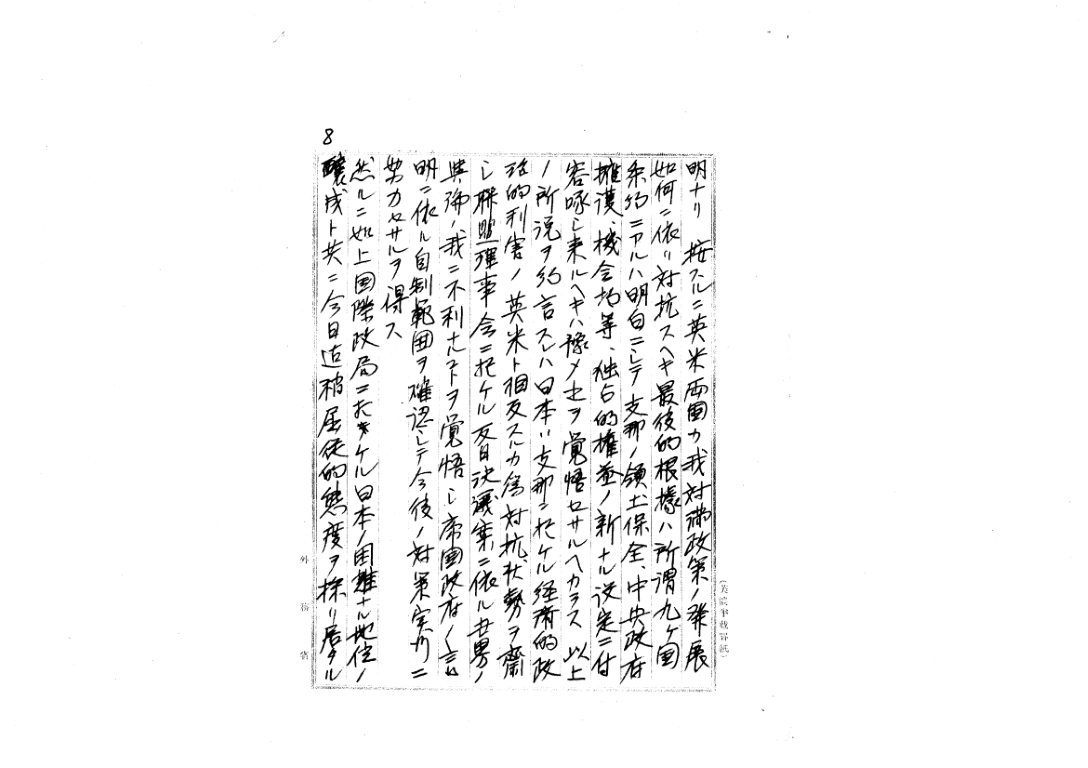 8
明ナリ 按スルニ英米両国カ我対満政策ノ発展
如何ニ依リ対抗スヘキ最後的根據ハ所謂九ケ国
条約ニアルハ明白ニシテ支那ノ領土保全、中央政府
擁護、機会均等、独占的権益ノ新ナル設定ニ付
容喙シ来ルヘキハ豫メ之ヲ覚悟セサルヘカラス 以上
ノ所説ヲ約言スレハ日本ハ支那ニ於ケル経済的政
治的利害ノ英米ト相反スルカ為対抗状勢ヲ齋
シ聯盟理事会ニ於ケル反日決議案ニ依ル世界ノ
輿論ノ我ニ不利ナルコトヲ覚悟シ帝国政府ノ言
明ニ依ル自制範囲ヲ確認シテ今後ノ対策実行ニ
努力セサルヲ得ス
然ルニ如上国際政局ニ於ケル日本ノ困難ナル地位ノ
醸成ト共ニ今日迄稍屈従的態度ヲ採リ居タル
外務省